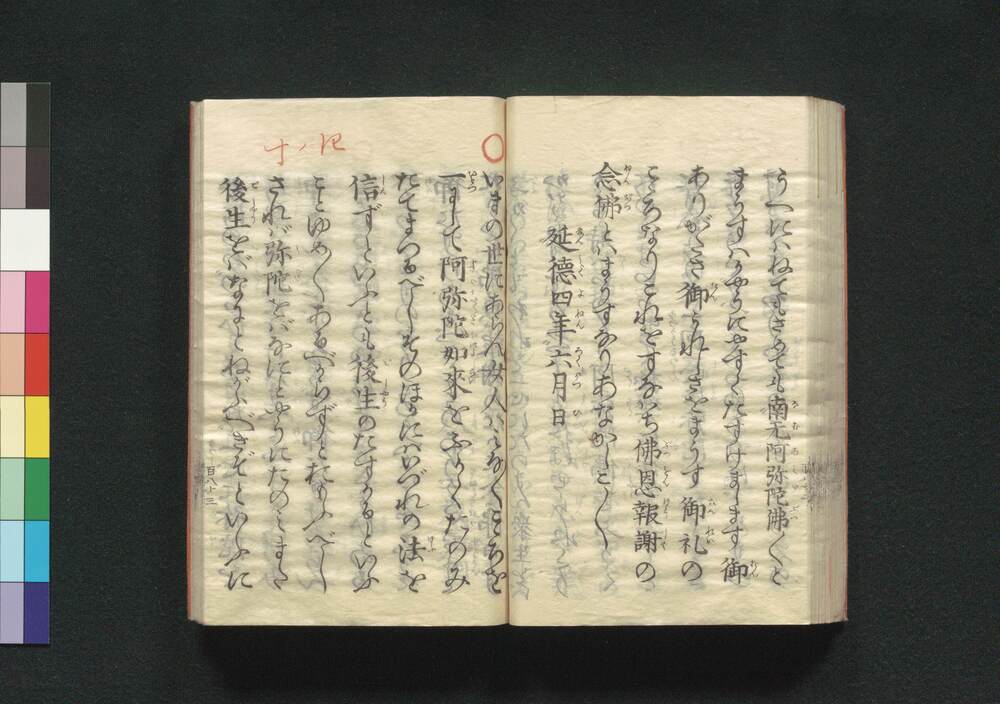 うへにはねてもさめても南无阿弥陀佛〳〵と
まうすはかやうにやすくたすけまします御
ありがたさ御うれしさをまうす御礼の
こゝろなりこれをすなはち佛恩報謝の
念佛とはまうすなりあなかしこ〳〵
延德四年六月日
いまの世にあらん女人はみな〳〵こゝろを
一にして阿弥陀如來をふかくたのみ
たてまつるべしそのほかにはいづれの法を
信ずといふとも後生のたすかるといふ
ことゆめ〳〵あるべからずとおもふべし
されば弥陀をばなにとやうにたのみまた
後生をばなにとねがふべきぞといふに
百八十三